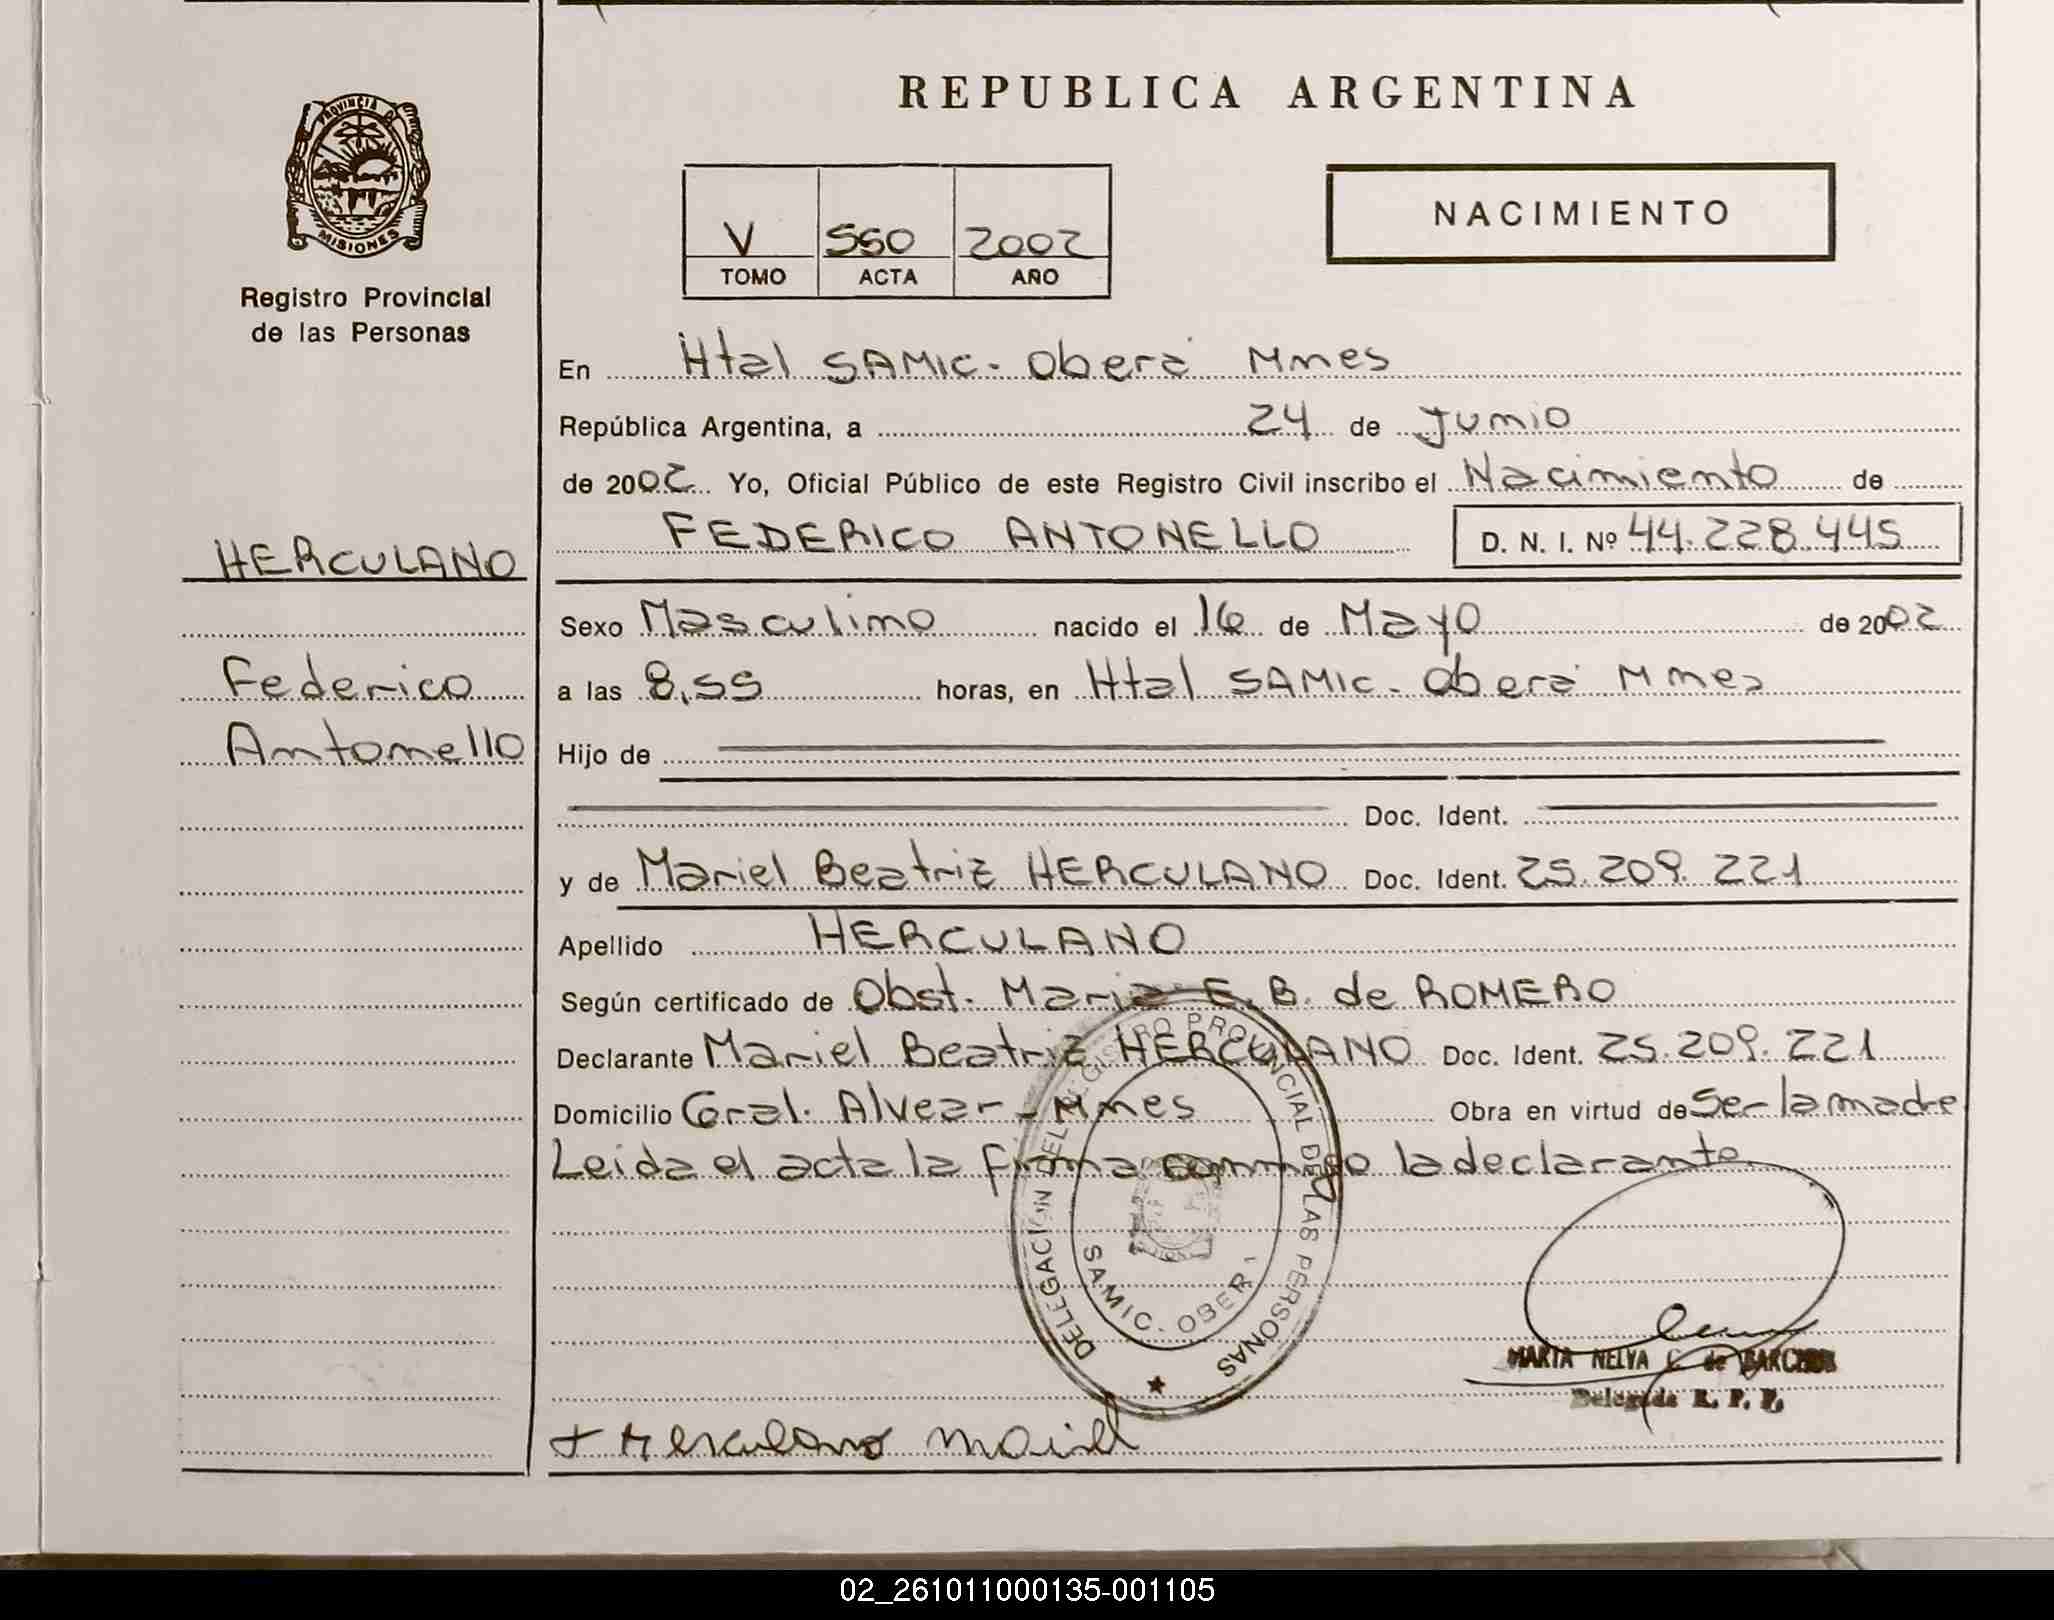 PROVINCIA D
MISIONES
Registro Provincial
de las Personas
HERCULANO
Federico
Antonello
REPUBLICA ARGENTINA
V 550 2002
TOMO ACTA AÑO
NACIMIENTO
En Htal SAMIC - Oberá Mnes
República Argentina, a 24 de Junio
de 2002 Yo, Oficial Público de este Registro Civil inscribo el Nacimiento de
FEDERICO ANTONELLO D. N. I. Nº 44.228.445
Sexo Masculino nacido el 16 de Mayo de 2002
a las 8,55 horas, en Htal SAMIC - Oberá Mnes
Hijo de
Doc. Ident.
y de Mariel Beatriz HERCULANO Doc. Ident. 25.209.221
Apellido HERCULANO
Según certificado de Obst. Maria E. B. de ROMERO
Declarante Mariel Beatriz HERCULANO Doc. Ident. 25.209.221
Domicilio Gral. Alvear - Mnes Obra en virtud de Ser la madre
Leida el acta la firma conmigo la declarante
DELEGACION DEL REGISTRO PROVINCIAL DE LAS PERSONAS
SAMIC - OBER
MARIA NELVA C. de
Delegada R. P. P.
+ Herculano Mariel
02_261011000135-001105